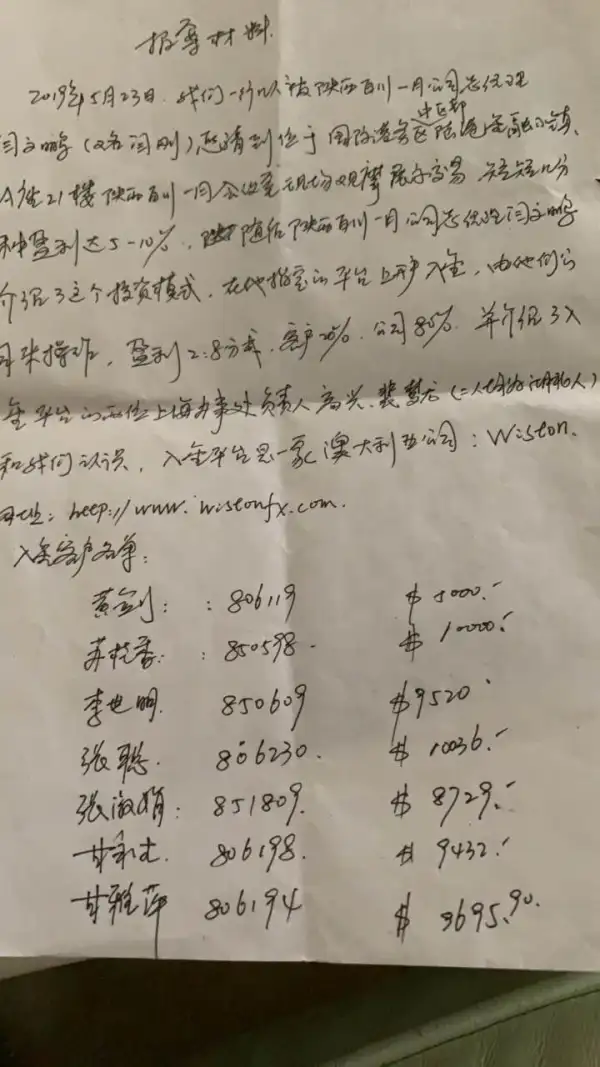 报案材料
2019年5月23日,我们一行人被陕西百川一月公司总经理
闫文鹏(又名闫刚)邀请到位于国际港务区陆港金融小镇
中区部
A座21楼陕西百川一月会议室现场观摩展示交易 短短几分
钟盈利达5-10%, 随后陕西百川一月公司总经理闫文鹏
介绍了这个投资模式,在他指定的平台上开户入金,由他们公
司来操作,盈利2:8分成,客户20%,公司80%.并介绍了入
金平台的两位上海办事处负责人高兴、裴慧龙(二人
和我们认识,入金平台是一家澳大利亚公司:Wiston.
网址:http://www.wistonfx.com.
入金客户名单:
黄剑: :806119 $5000.-
苏桂香: :850598. $10000.-
李世明. 850609 $9520
张聪. 806230. $10036.-
张淑娟: 851809. $8729.-
甘永士. 806198. $9432.-
甘雅萍 806194 $3695.90.